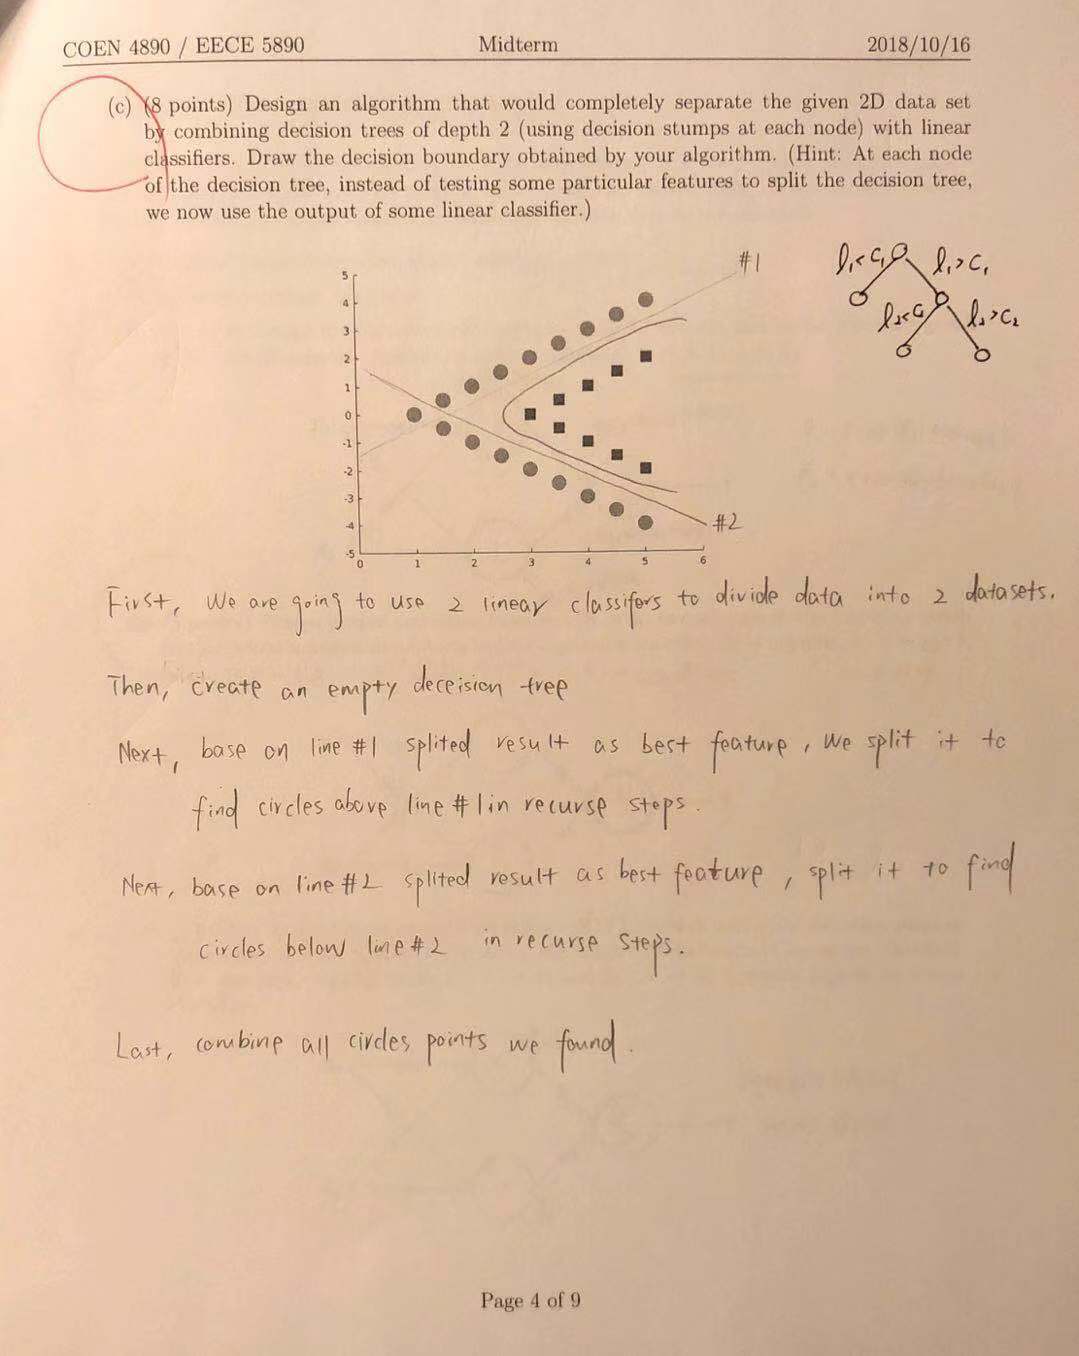 COEN 4890 / EECE 5890 Midterm 2018/10/16
(c) (8 points) Design an algorithm that would completely separate the given 2D data set
by combining decision trees of depth 2 (using decision stumps at each node) with linear
classifiers. Draw the decision boundary obtained by your algorithm. (Hint: At each node
of the decision tree, instead of testing some particular features to split the decision tree,
we now use the output of some linear classifier.)
#1
l₁<C₁ l₁>C₁
l₂<C l₂>C₂
5
4
3
2
1
0
-1
-2
-3
-4
-5
#2
0 1 2 3 4 5 6
First, We are going to use 2 linear classifers to divide data into 2 datasets.
Then, create an empty deceision tree
Next, base on line #1 splited result as best feature, we split it to
find circles above line #1 in recurse steps.
Next, base on line #2 splited result as best feature, split it to find
circles below line #2 in recurse steps.
Last, combine all circles points we found.
Page 4 of 9